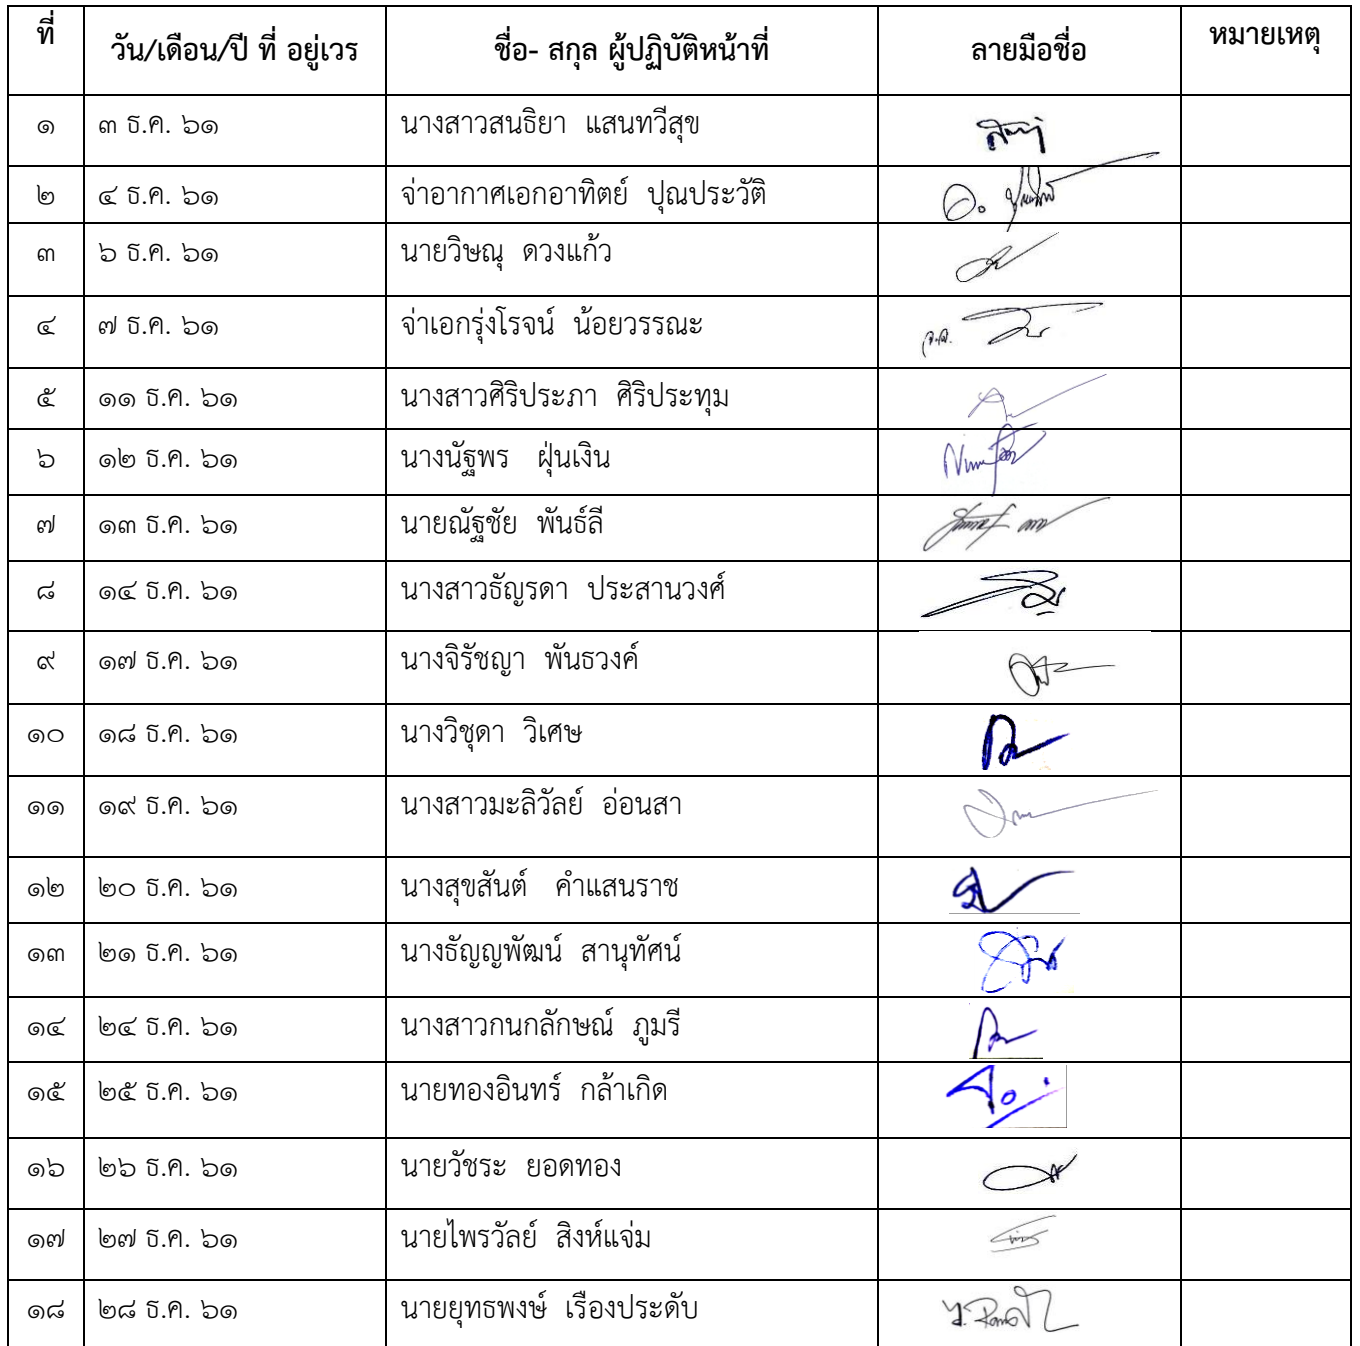 ที่ วัน/เดือน/ปี ที่ อยู่เวร ชื่อ- สกุล ผู้ปฏิบัติหน้าที่ ลายมือชื่อ หมายเหตุ
๑ ๓ ธ.ค. ๖๑ นางสาวสนธิยา แสนทวีสุข
๒ ๔ ธ.ค. ๖๑ จ่าอากาศเอกอาทิตย์ ปุณประวัติ
๓ ๖ ธ.ค. ๖๑ นายวิษณุ ดวงแก้ว
๔ ๗ ธ.ค. ๖๑ จ่าเอกรุ่งโรจน์ น้อยวรรณะ
๕ ๑๑ ธ.ค. ๖๑ นางสาวศิริประภา ศิริประทุม
๖ ๑๒ ธ.ค. ๖๑ นางนัฐพร ฝุ่นเงิน
๗ ๑๓ ธ.ค. ๖๑ นายณัฐชัย พันธ์ลี
๘ ๑๔ ธ.ค. ๖๑ นางสาวธัญรดา ประสานวงศ์
๙ ๑๗ ธ.ค. ๖๑ นางจิรัชญา พันธวงค์
๑๐ ๑๘ ธ.ค. ๖๑ นางวิชุดา วิเศษ
๑๑ ๑๙ ธ.ค. ๖๑ นางสาวมะลิวัลย์ อ่อนสา
๑๒ ๒๐ ธ.ค. ๖๑ นางสุขสันต์ คำแสนราช
๑๓ ๒๑ ธ.ค. ๖๑ นางธัญญพัฒน์ สานุทัศน์
๑๔ ๒๔ ธ.ค. ๖๑ นางสาวกนกลักษณ์ ภูมรี
๑๕ ๒๕ ธ.ค. ๖๑ นายทองอินทร์ กล้าเกิด
๑๖ ๒๖ ธ.ค. ๖๑ นายวัชระ ยอดทอง
๑๗ ๒๗ ธ.ค. ๖๑ นายไพรวัลย์ สิงห์แจ่ม
๑๘ ๒๘ ธ.ค. ๖๑ นายยุทธพงษ์ เรืองประดับ